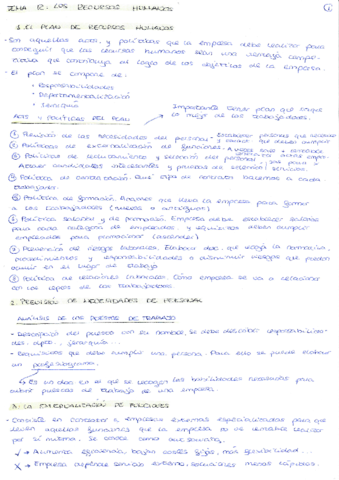 TEMA 12. LOS RECURSOS HUMANOS
1. EL PLAN DE RECURSOS HUMANOS
- Son aquellas acts. y políticas que la empresa debe realizar para
conseguir que los recursos humanos sean una ventaja compe-
titiva que contribuya al logro de los objetivos de la empresa.
- El plan se compone de:
· Responsabilidades
· Departamentalización
· Jerarquía
Importante tener plan que saque
lo mejor de los trabajadores.
ACTS. Y POLÍTICAS DEL PLAN
1 Previsión de las necesidades del personal.
2 Políticas de externalización de funciones.
3 Políticas de reclutamiento y selección del personal.
Atraer candidatos interesantes y pruebas de selección
4 Política de contratación. Qué tipo de contrato hacemos a cada
trabajador.
5 Política de formación. Acciones que lleva la empresa para formar
a los trabajadores (nuevos o antiguos)
6 Política salarial y de promoción. Empresa debe establecer salarios
para cada categoría de empleados, y requisitos deben cumplir
empleados para promocionar (ascender)
7 Prevención de riesgos laborales. Elaborar doc. que recoja la normativa,
procedimientos y responsabilidades a disminuir riesgos que pueden
ocurrir en el lugar de trabajo
8 Política de relaciones laborales. Cómo empresa se va a relacionar
con los repres. de los trabajadores
2. PREVISIÓN DE NECESIDADES DE PERSONAL
ANÁLISIS DE LOS PUESTOS DE TRABAJO
- Descripción del puesto con su nombre. Se debe describir responsabilida-
des, jerarquía...
- Requisitos que debe cumplir una persona. Para ello se puede elaborar
un profesiograma.
Es un doc. en el que se recogen las habilidades necesarias para
cubrir puestos de trabajo de una empresa.
3. LA EXTERNALIZACIÓN DE FUNCIONES
- Consiste en contratar a empresas externas especializadas para que
lleven aquellas funciones que la empresa no ve rentable realizar
por sí misma. Se conoce como outsourcing.
✓ → Aumento eficiencia, bajan costes fijos, más flexibilidad...
✗ → Empresa depende servicio externo, soluciones menos rápidas.